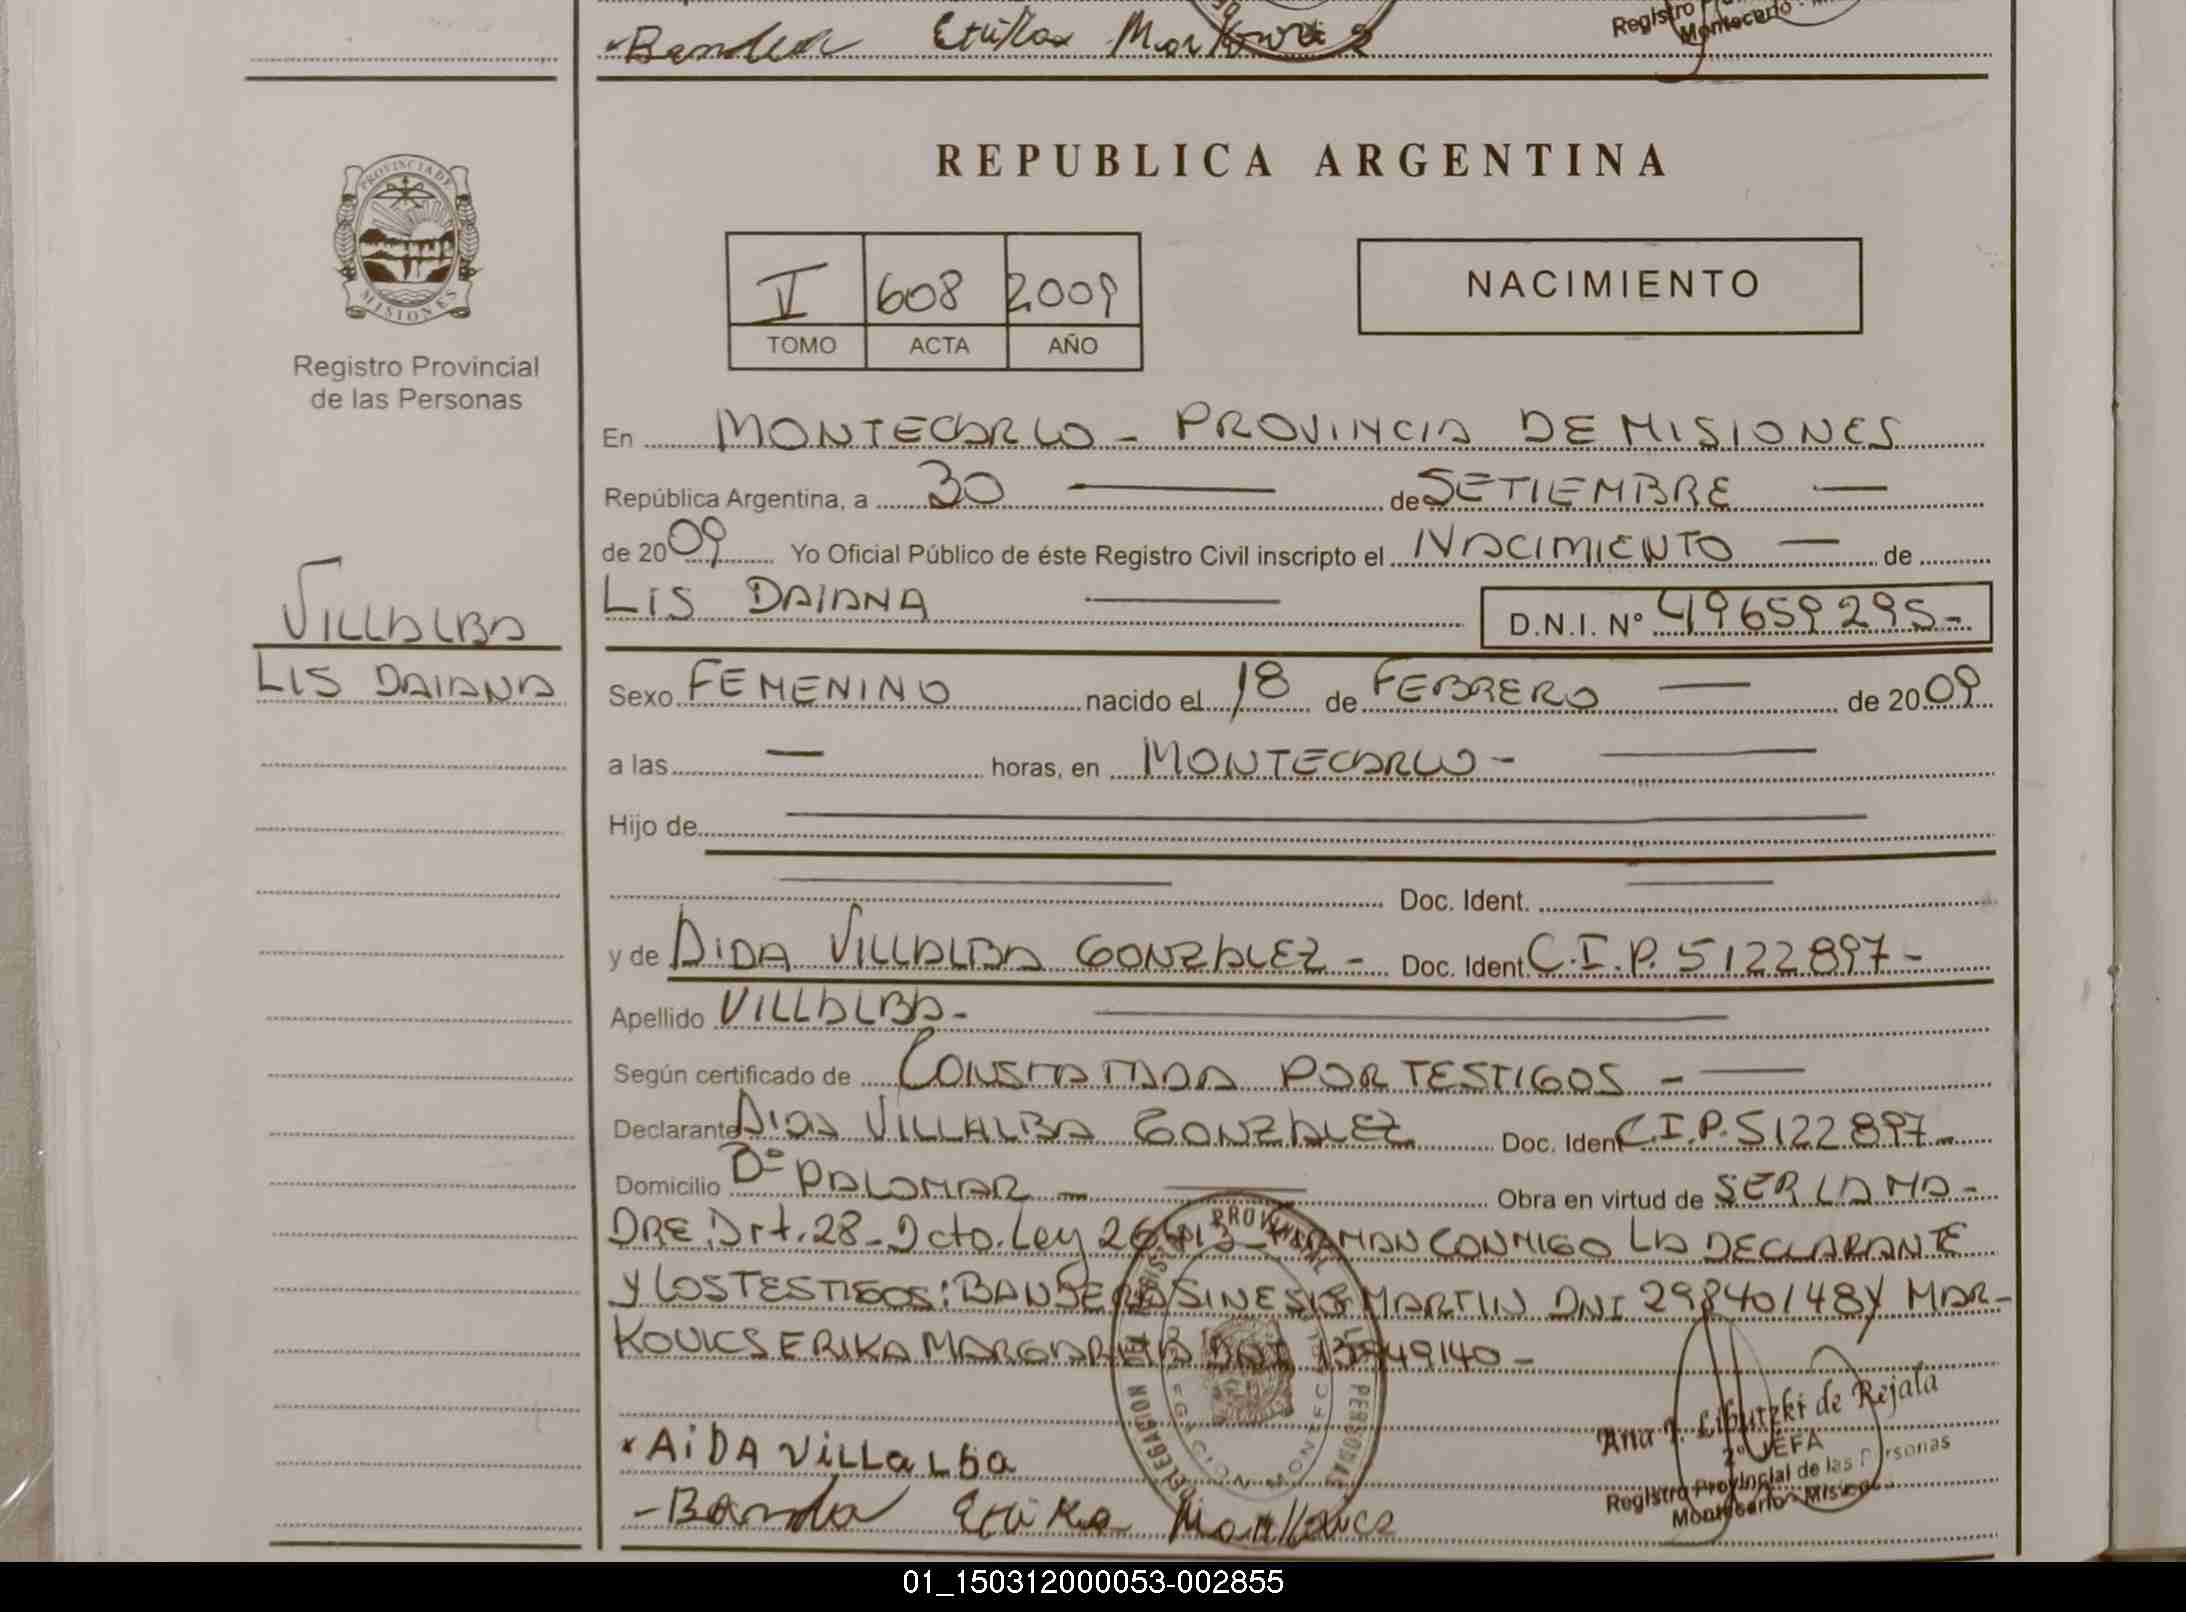 Bandera Erika Markovics
Registro
Montecarlo
PROVINCIA DE
MISIONES
Registro Provincial
de las Personas
REPUBLICA ARGENTINA
V 608 2009
TOMO ACTA AÑO
NACIMIENTO
En MONTECARLO - PROVINCIA DE MISIONES
República Argentina, a 30 — de SETIEMBRE —
de 2009 Yo Oficial Público de éste Registro Civil inscripto el NACIMIENTO — de
LIS DAIANA — D.N.I. N° 49659295-
VILLALBA
LIS DAIANA
Sexo FEMENINO nacido el 18 de FEBRERO — de 2009
a las — horas, en MONTECARLO - —
Hijo de —
— Doc. Ident. —
y de AIDA VILLALBA GONZALEZ - Doc. Ident. C.I.P. 5122897-
Apellido VILLALBA- —
Según certificado de CONSTATADA POR TESTIGOS - —
Declarante AIDA VILLALBA GONZALEZ Doc. Ident C.I.P. 5122897-
Domicilio B° PALOMAR - — Obra en virtud de SER LA MA-
DRE. Art. 28- Dcto. Ley 26413- FIRMAN CONMIGO LA DECLARANTE
Y LOS TESTIGOS: BANDERA SINESIO MARTIN DNI 29840148 Y MAR-
KOVICS ERIKA MARGARITA DNI 49140-
x AiDA ViLLaLba
-Bandera Erika Markovics
Ana T. Libutzki de Rejala
2° JEFA
Registro Provincial de las Personas
Montecarlo - Misiones
01_150312000053-002855